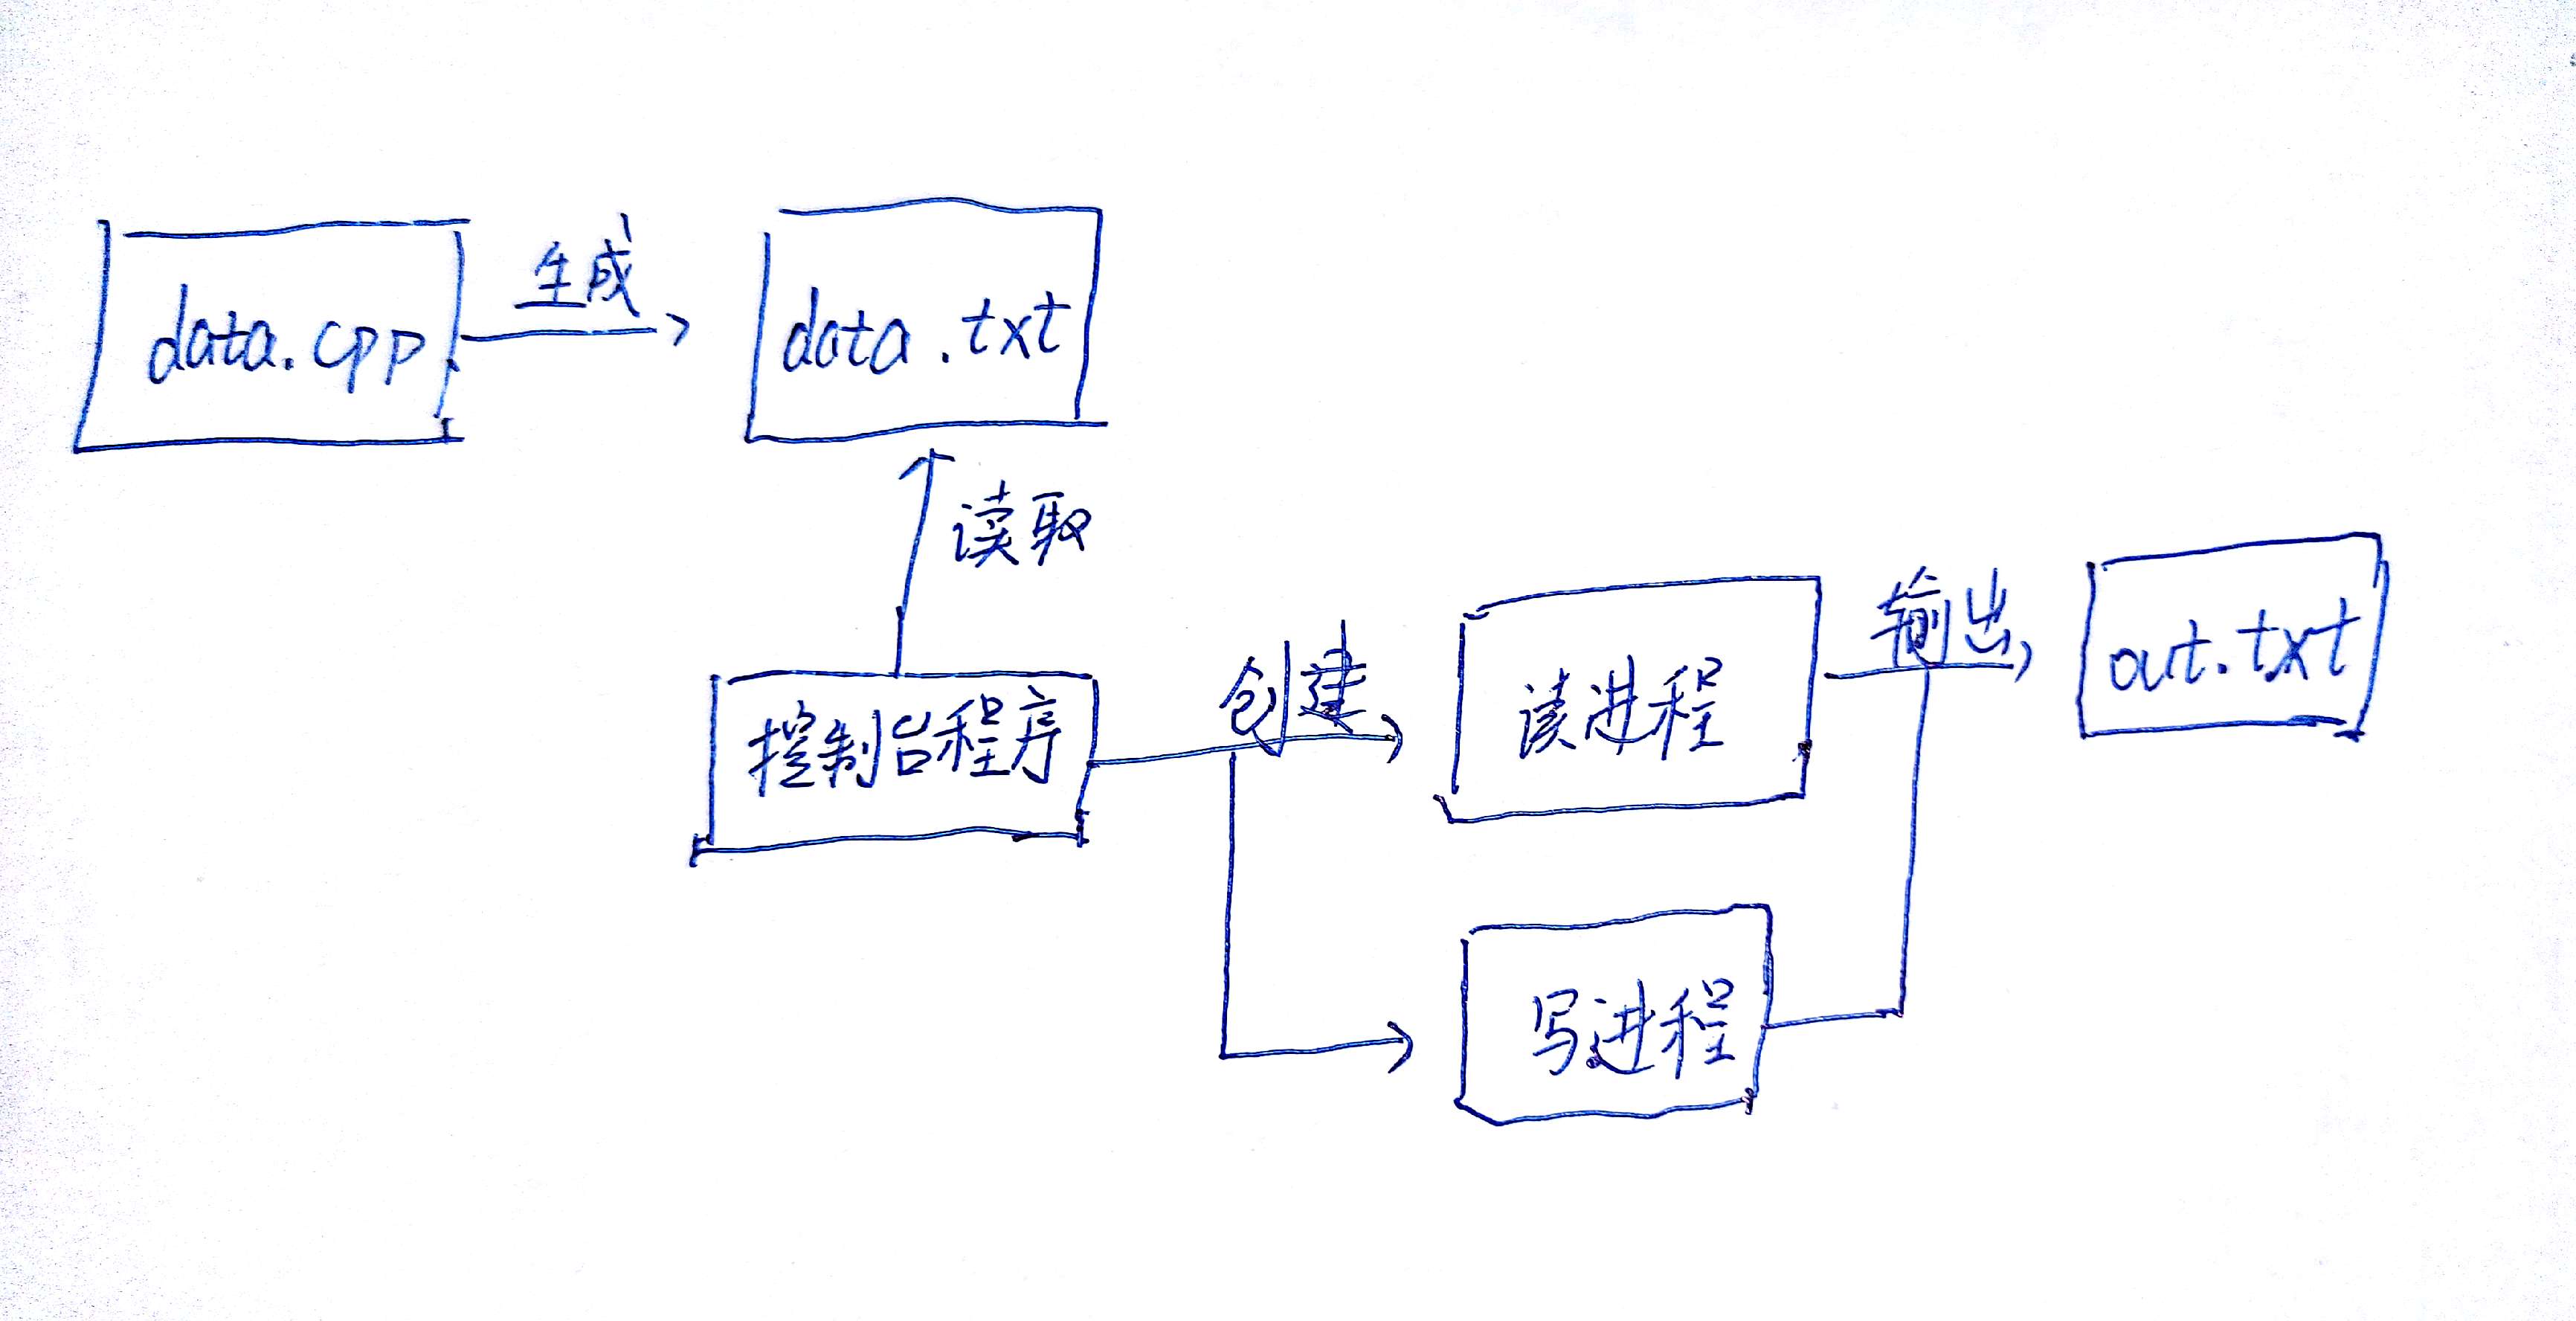 data.cpp
生成
data.txt
读取
控制台程序
创建
读进程
写进程
输出
out.txt